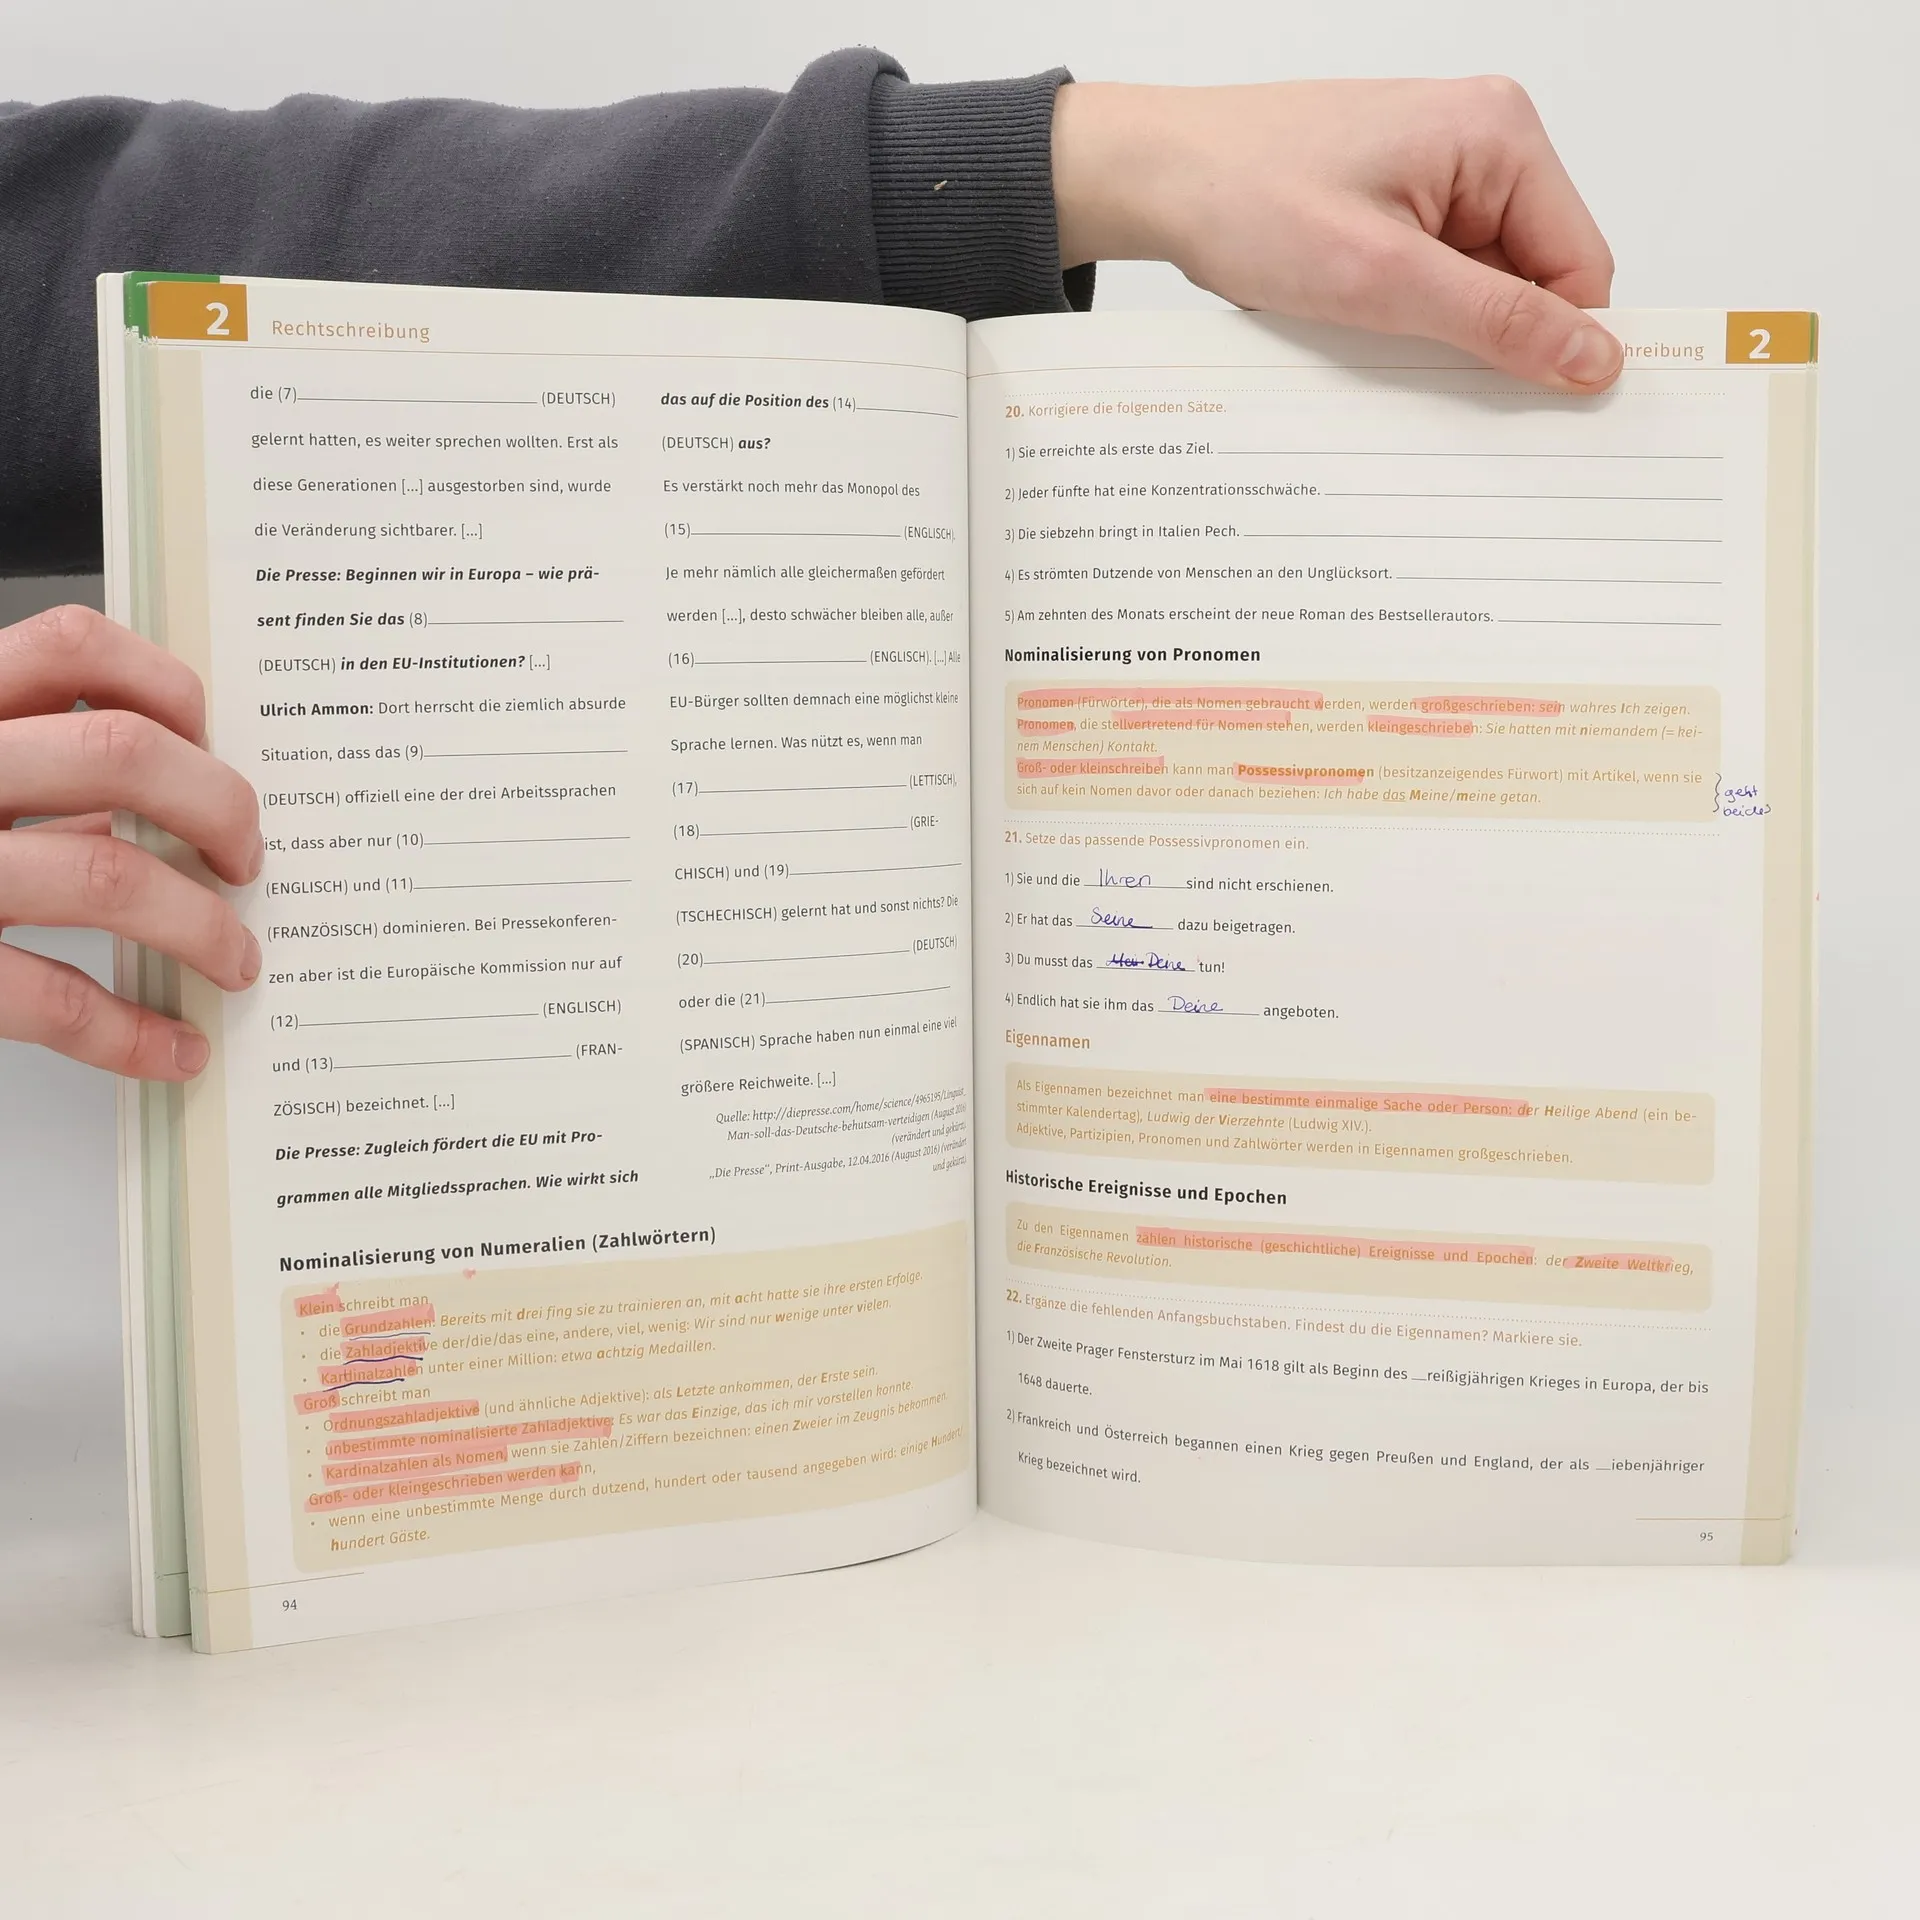 2 Rechtschreibung
die (7)____ (DEUTSCH)
gelernt hatten, es weiter sprechen wollten. Erst als
diese Generationen [...] ausgestorben sind, wurde
die Veränderung sichtbarer. [...]
Die Presse: Beginnen wir in Europa – wie prä-
sent finden Sie das (8)____
(DEUTSCH) in den EU-Institutionen? [...]
Ulrich Ammon: Dort herrscht die ziemlich absurde
Situation, dass das (9)____
(DEUTSCH) offiziell eine der drei Arbeitssprachen
ist, dass aber nur (10)____
(ENGLISCH) und (11)____
(FRANZÖSISCH) dominieren. Bei Pressekonferen-
zen aber ist die Europäische Kommission nur auf
(12)____ (ENGLISCH)
und (13)____ (FRAN-
ZÖSISCH) bezeichnet. [...]
Die Presse: Zugleich fördert die EU mit Pro-
grammen alle Mitgliedssprachen. Wie wirkt sich
das auf die Position des (14)____
(DEUTSCH) aus?
Es verstärkt noch mehr das Monopol des
(15)____ (ENGLISCH).
Je mehr nämlich alle gleichermaßen gefördert
werden [...], desto schwächer bleiben alle, außer
(16)____ (ENGLISCH). [...] Alle
EU-Bürger sollten demnach eine möglichst kleine
Sprache lernen. Was nützt es, wenn man
(17)____ (LETTISCH),
(18)____ (GRIE-
CHISCH) und (19)____
(TSCHECHISCH) gelernt hat und sonst nichts? Die
(20)____ (DEUTSCH)
oder die (21)____
(SPANISCH) Sprache haben nun einmal eine viel
größere Reichweite. [...]
Quelle: http://diepresse.com/home/science/4965195/Linguist_
Man-soll-das-Deutsche-behutsam-verteidigen (August 2016)
(verändert und gekürzt)
„Die Presse", Print-Ausgabe, 12.04.2016 (August 2016) (verändert
und gekürzt)
Nominalisierung von Numeralien (Zahlwörtern)
Klein schreibt man
• die Grundzahlen: Bereits mit drei fing sie zu trainieren an, mit acht hatte sie ihre ersten Erfolge.
• die Zahladjektive der/die/das eine, andere, viel, wenig: Wir sind nur wenige unter vielen.
• Kardinalzahlen unter einer Million: etwa achtzig Medaillen.
Groß schreibt man
• Ordnungszahladjektive (und ähnliche Adjektive): als Letzte ankommen, der Erste sein.
• unbestimmte nominalisierte Zahladjektive: Es war das Einzige, das ich mir vorstellen konnte.
• Kardinalzahlen als Nomen, wenn sie Zahlen/Ziffern bezeichnen: einen Zweier im Zeugnis bekommen.
Groß- oder kleingeschrieben werden kann,
• wenn eine unbestimmte Menge durch dutzend, hundert oder tausend angegeben wird: einige Hundert/
hundert Gäste.
94
hreibung 2
20. Korrigiere die folgenden Sätze.
1) Sie erreichte als erste das Ziel. ____
2) Jeder fünfte hat eine Konzentrationsschwäche. ____
3) Die siebzehn bringt in Italien Pech. ____
4) Es strömten Dutzende von Menschen an den Unglücksort. ____
5) Am zehnten des Monats erscheint der neue Roman des Bestsellerautors. ____
Nominalisierung von Pronomen
Pronomen (Fürwörter), die als Nomen gebraucht werden, werden großgeschrieben: sein wahres Ich zeigen.
Pronomen, die stellvertretend für Nomen stehen, werden kleingeschrieben: Sie hatten mit niemandem (= kei-
nem Menschen) Kontakt.
Groß- oder kleinschreiben kann man Possessivpronomen (besitzanzeigendes Fürwort) mit Artikel, wenn sie
sich auf kein Nomen davor oder danach beziehen: Ich habe das Meine/meine getan.
geht
beides
21. Setze das passende Possessivpronomen ein.
1) Sie und die Ihren sind nicht erschienen.
2) Er hat das Seine dazu beigetragen.
3) Du musst das Deine tun!
4) Endlich hat sie ihm das Deine angeboten.
Eigennamen
Als Eigennamen bezeichnet man eine bestimmte einmalige Sache oder Person: der Heilige Abend (ein be-
stimmter Kalendertag), Ludwig der Vierzehnte (Ludwig XIV.).
Adjektive, Partizipien, Pronomen und Zahlwörter werden in Eigennamen großgeschrieben.
Historische Ereignisse und Epochen
Zu den Eigennamen zählen historische (geschichtliche) Ereignisse und Epochen: der Zweite Weltkrieg,
die Französische Revolution.
22. Ergänze die fehlenden Anfangsbuchstaben. Findest du die Eigennamen? Markiere sie.
1) Der Zweite Prager Fenstersturz im Mai 1618 gilt als Beginn des __reißigjährigen Krieges in Europa, der bis
1648 dauerte.
2) Frankreich und Österreich begannen einen Krieg gegen Preußen und England, der als __iebenjähriger
Krieg bezeichnet wird.
95